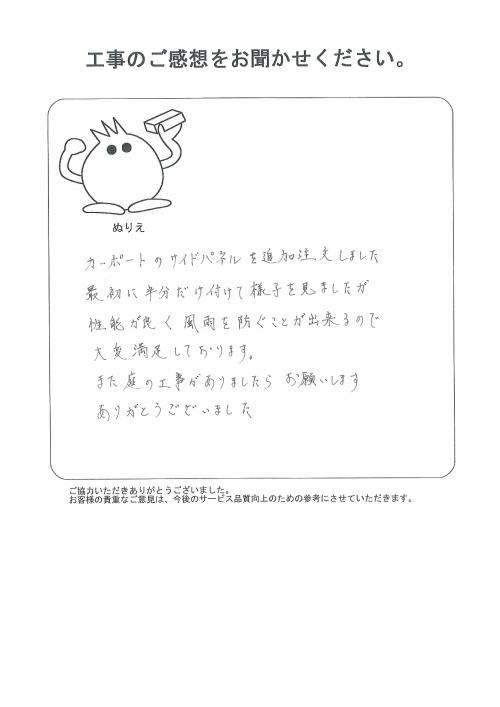 工事のご感想をお聞かせください。
ぬりえ
カーポートのサイドパネルを追加注文しました
最初に半分だけ付けて様子を見ましたが
性能が良く風雨を防ぐことが出来るので
大変満足しております。
また庭の工事がありましたらお願いします
ありがとうございました
ご協力いただきありがとうございました。
お客様の貴重なご意見は、今後のサービス品質向上のための参考にさせていただきます。